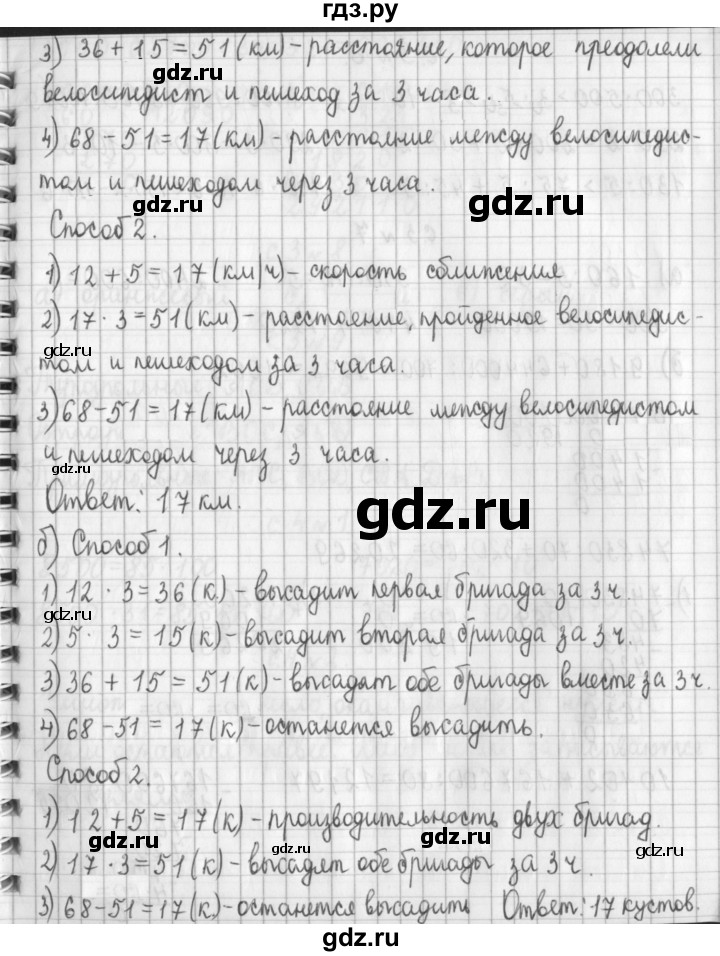 гдз.ру
3) 36 + 15 = 51 (км) - расстояние, которое преодолели
gdz.ru
gdz.ru
велосипедист и пешеход за 3 часа.
4) 68 - 51 = 17 (км) - расстояние между велосипедис-
gdz.ru
том и пешеходом через 3 часа.
gdz.ru
Способ 2.
1) 12 + 5 = 17 (км/ч) - скорость сближения
gdz.ru
gdz.ru
2) 17 · 3 = 51 (км) - расстояние, пройденное велосипедис-
gdz.ru
том и пешеходом за 3 часа.
gdz.ru
3) 68 - 51 = 17 (км) - расстояние между велосипедистом
и пешеходом через 3 часа.
gdz.ru
gdz.ru
Ответ: 17 км.
gdz.ru
б) Способ 1.
1) 12 · 3 = 36 (к.) - высадит первая бригада за 3 ч.
gdz.ru
gdz.ru
2) 5 · 3 = 15 (к) - высадит вторая бригада за 3 ч.
3) 36 + 15 = 51 (к) - высадят обе бригады вместе за 3 ч.
gdz.ru
gdz.ru
4) 68 - 51 = 17 (к) - останется высадить.
Способ 2.
gdz.ru
1) 12 + 5 = 17 (к) - производительность двух бригад.
gdz.ru
gdz.ru
2) 17 · 3 = 51 (к) - высадят обе бригады за 3 ч.
gdz.ru
3) 68 - 51 = 17 (к) - останется высадить Ответ: 17 кустов.
gdz.ru
гдз.ру